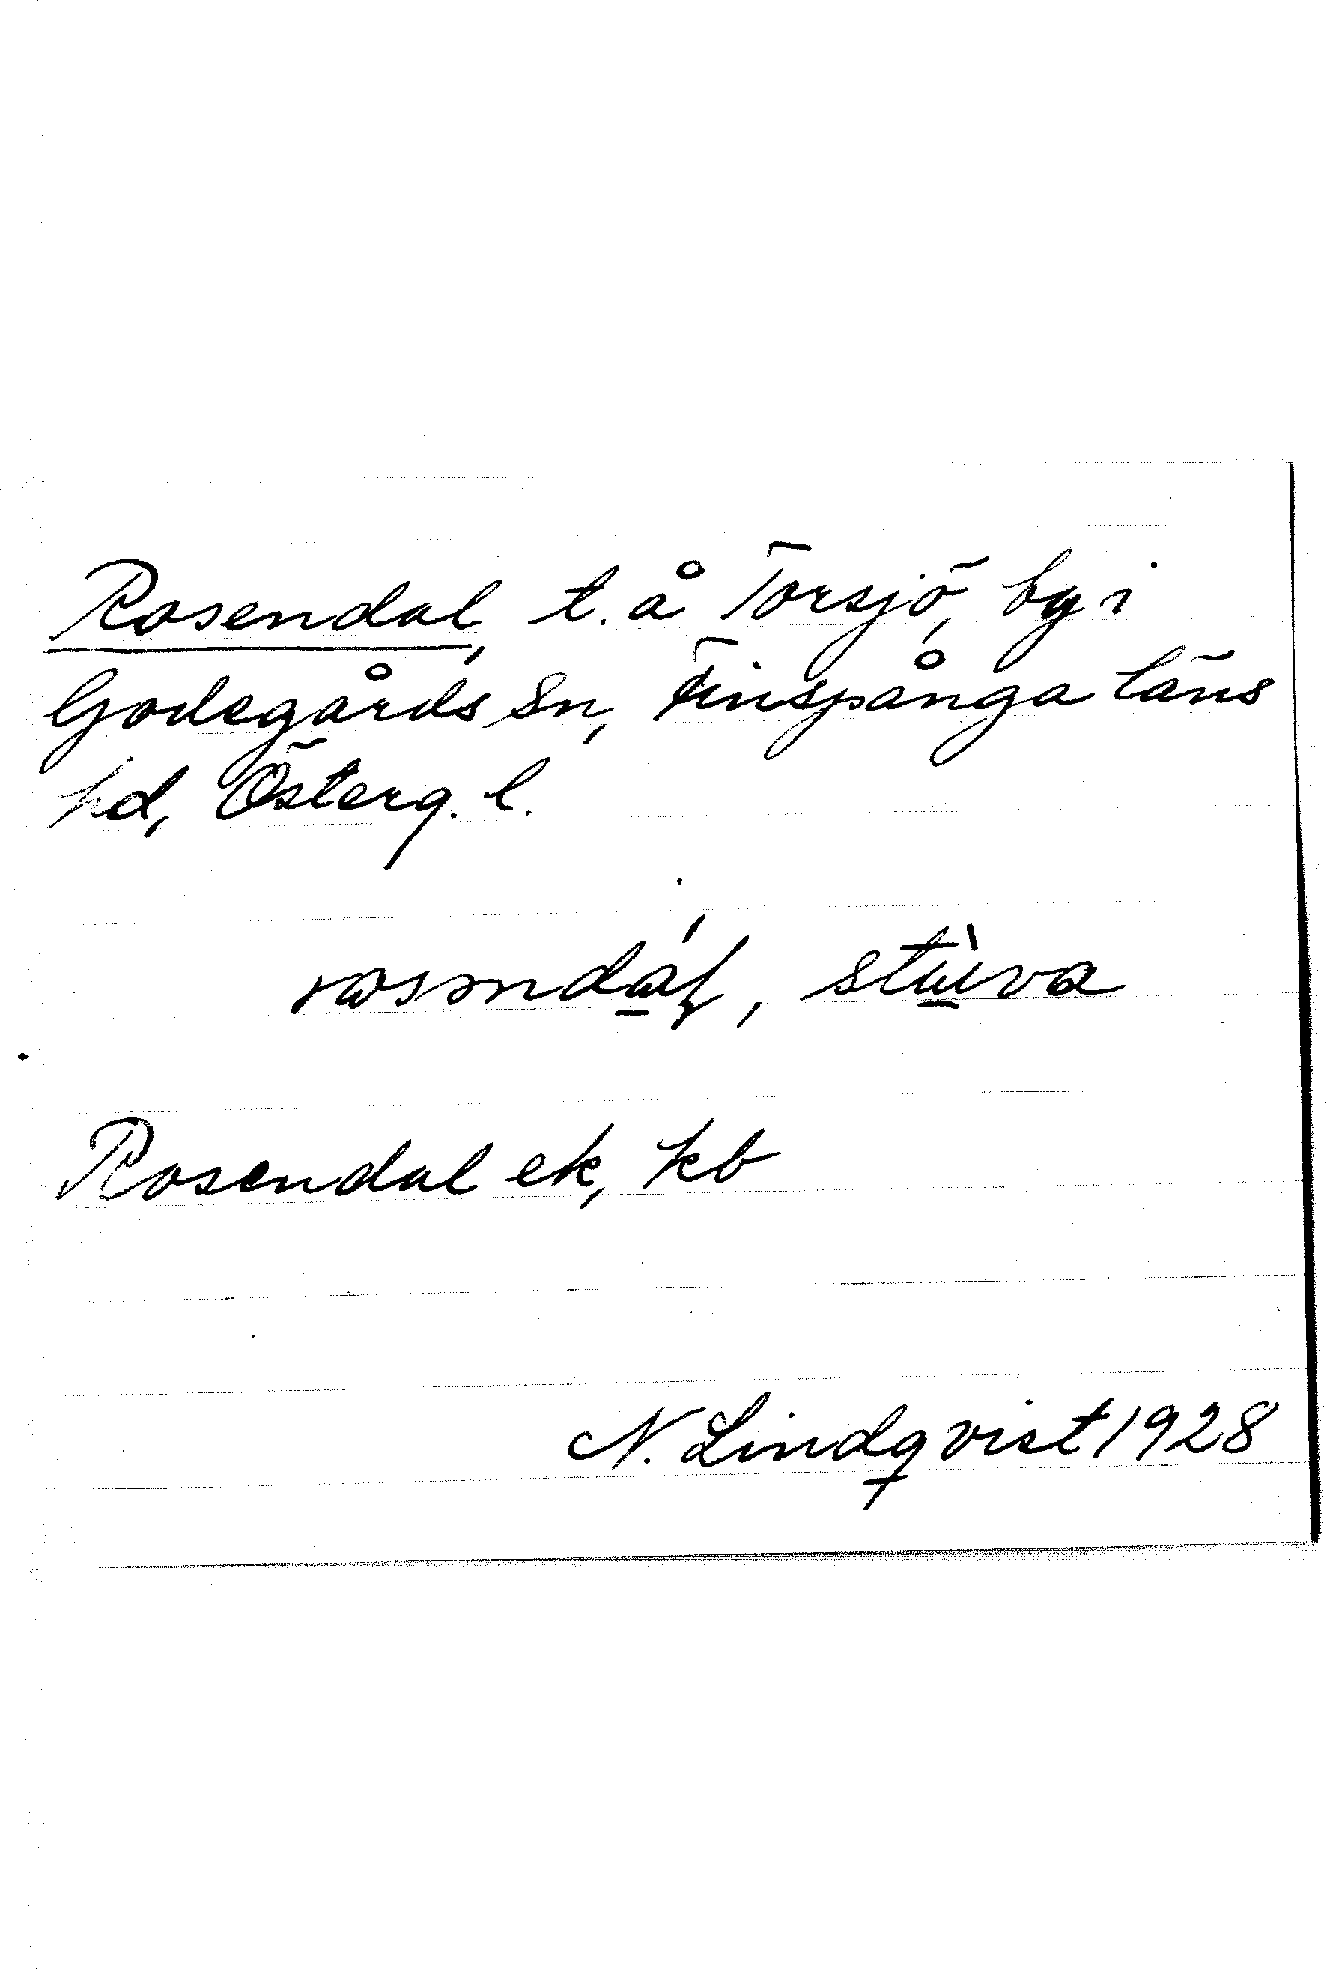 Rosendal, t. å Torsjö, by i
Godegårds sn, Finspånga läns
hd, Österg. l.
rosəndá̲ɫ, stù̲va
Rosendal ek, kb
N. Lindqvist 1928